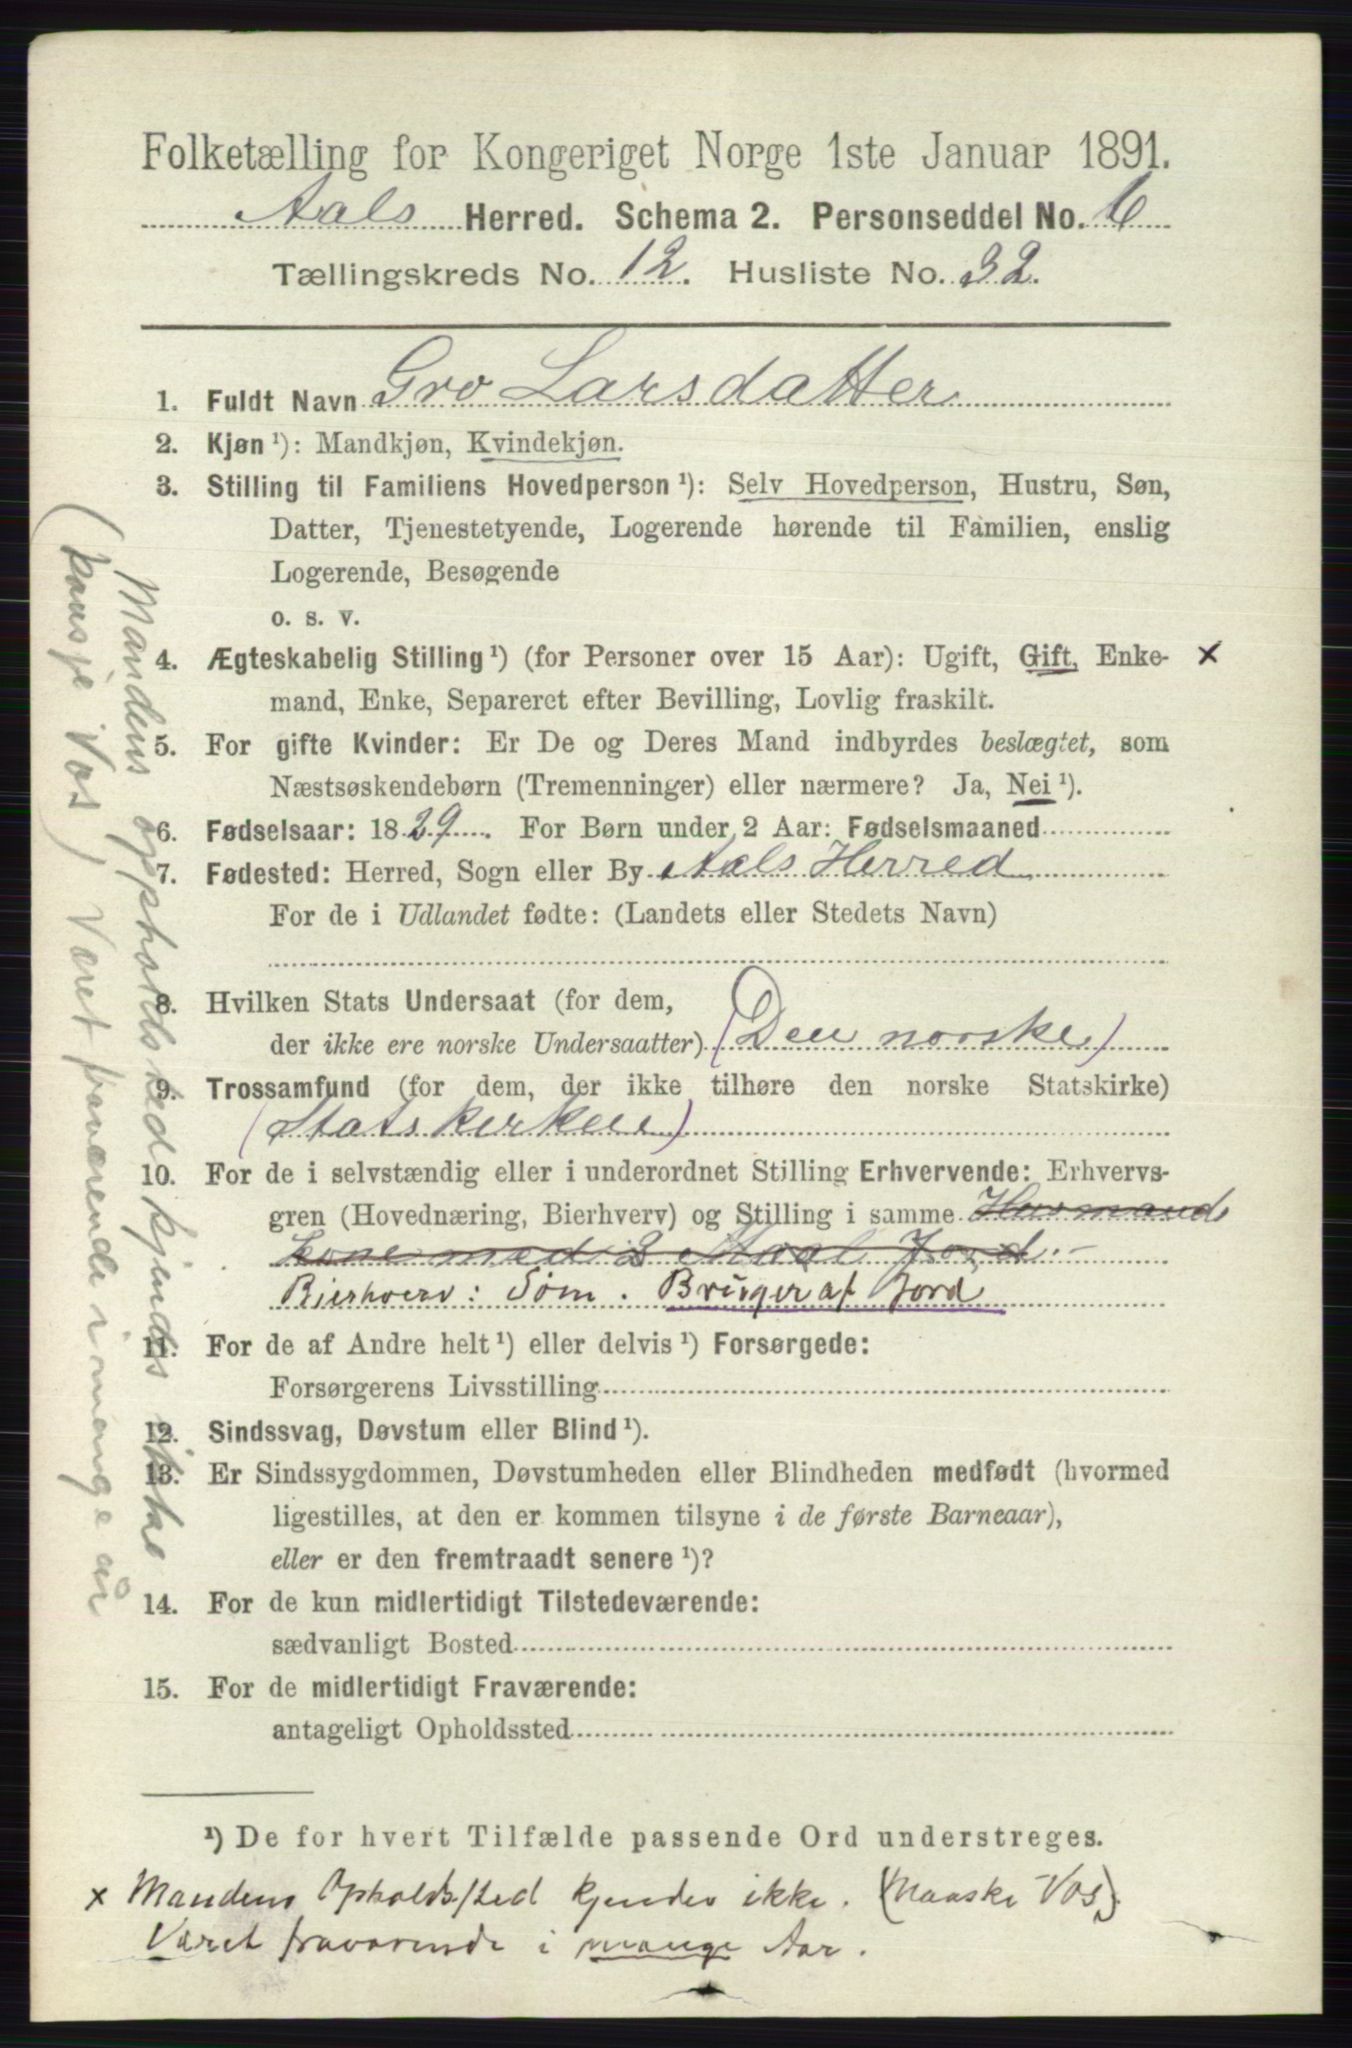 Folketælling for Kongeriget Norge 1ste Januar 1891.
Aals Herred. Schema 2. Personseddel No. 6
Tællingskreds No. 12. Husliste No. 32.
1. Fuldt Navn Gro Larsdatter
2. Kjøn ¹): Mandkjøn, Kvindekjøn.
3. Stilling til Familiens Hovedperson ¹): Selv Hovedperson, Hustru, Søn,
Datter, Tjenestetyende, Logerende hørende til Familien, enslig
Logerende, Besøgende
o. s. v.
4. Ægteskabelig Stilling ¹) (for Personer over 15 Aar): Ugift, Gift, Enke- x
mand, Enke, Separeret efter Bevilling, Lovlig fraskilt.
5. For gifte Kvinder: Er De og Deres Mand indbyrdes beslægtet, som
Næstsøskendebørn (Tremenninger) eller nærmere? Ja, Nei ¹).
6. Fødselsaar: 1829. For Børn under 2 Aar: Fødselsmaaned
7. Fødested: Herred, Sogn eller By Aals Herred
For de i Udlandet fødte: (Landets eller Stedets Navn)
8. Hvilken Stats Undersaat (for dem,
der ikke ere norske Undersaatter) (Den norske)
9. Trossamfund (for dem, der ikke tilhøre den norske Statskirke)
(Statskirken)
10. For de i selvstændig eller i underordnet Stilling Erhvervende: Erhvervs-
gren (Hovednæring, Bierhverv) og Stilling i samme Husmands
kone med 2 Maal Jord.-
Bierhverv: Søm. Bruger af Jord
11. For de af Andre helt ¹) eller delvis ¹) Forsørgede:
Forsørgerens Livsstilling
12. Sindssvag, Døvstum eller Blind ¹).
13. Er Sindssygdommen, Døvstumheden eller Blindheden medfødt (hvormed
ligestilles, at den er kommen tilsyne i de første Barneaar),
eller er den fremtraadt senere ¹)?
14. For de kun midlertidigt Tilstedeværende:
sædvanligt Bosted
15. For de midlertidigt Fraværende:
antageligt Opholdssted
¹) De for hvert Tilfælde passende Ord understreges.
x Mandens Opholdssted kjendes ikke. (Maaske Vos).
Været fraværende i mange Aar.
Mandens oppholdsted kjendes ikke
(kansje Vos) Været fraværende i mange år